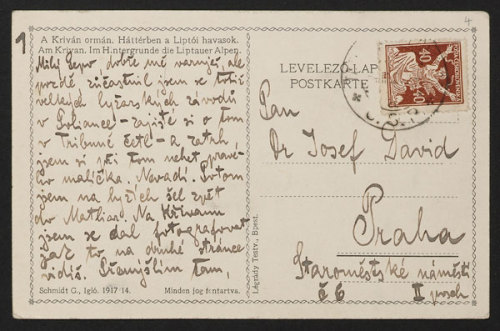 4
1
A Kriván ormán. Háttérben a Liptói havasok.
Am Krivan. Im Hintergrunde die Liptauer Alpen.
Milý Pepo, dobře mě varuješ, ale
pozdě zúčastnil jsem se totiž
velkých lyžařských závodů
v Poliance - zajisté si o tom
v Tribuně četl - a zatrh
jsem si při tom nehet pravé-
ho malíčka. Nevadí. Potom
jsem na lyžích šel zpět
do Matliar. Na Křivanu
jsem se dal fotografovat
jak to na druhé stránce
vidíš. Přemýšlím tam,
Schmidt G., Igló. 1917 14. Minden jog fentartva.
Légrády Testv., Bpest.
LEVELEZŐ-LAP
POSTKARTE
40
40
Pan
Dr Josef David
Praha
Staroměstské náměstí
č 6 II posch